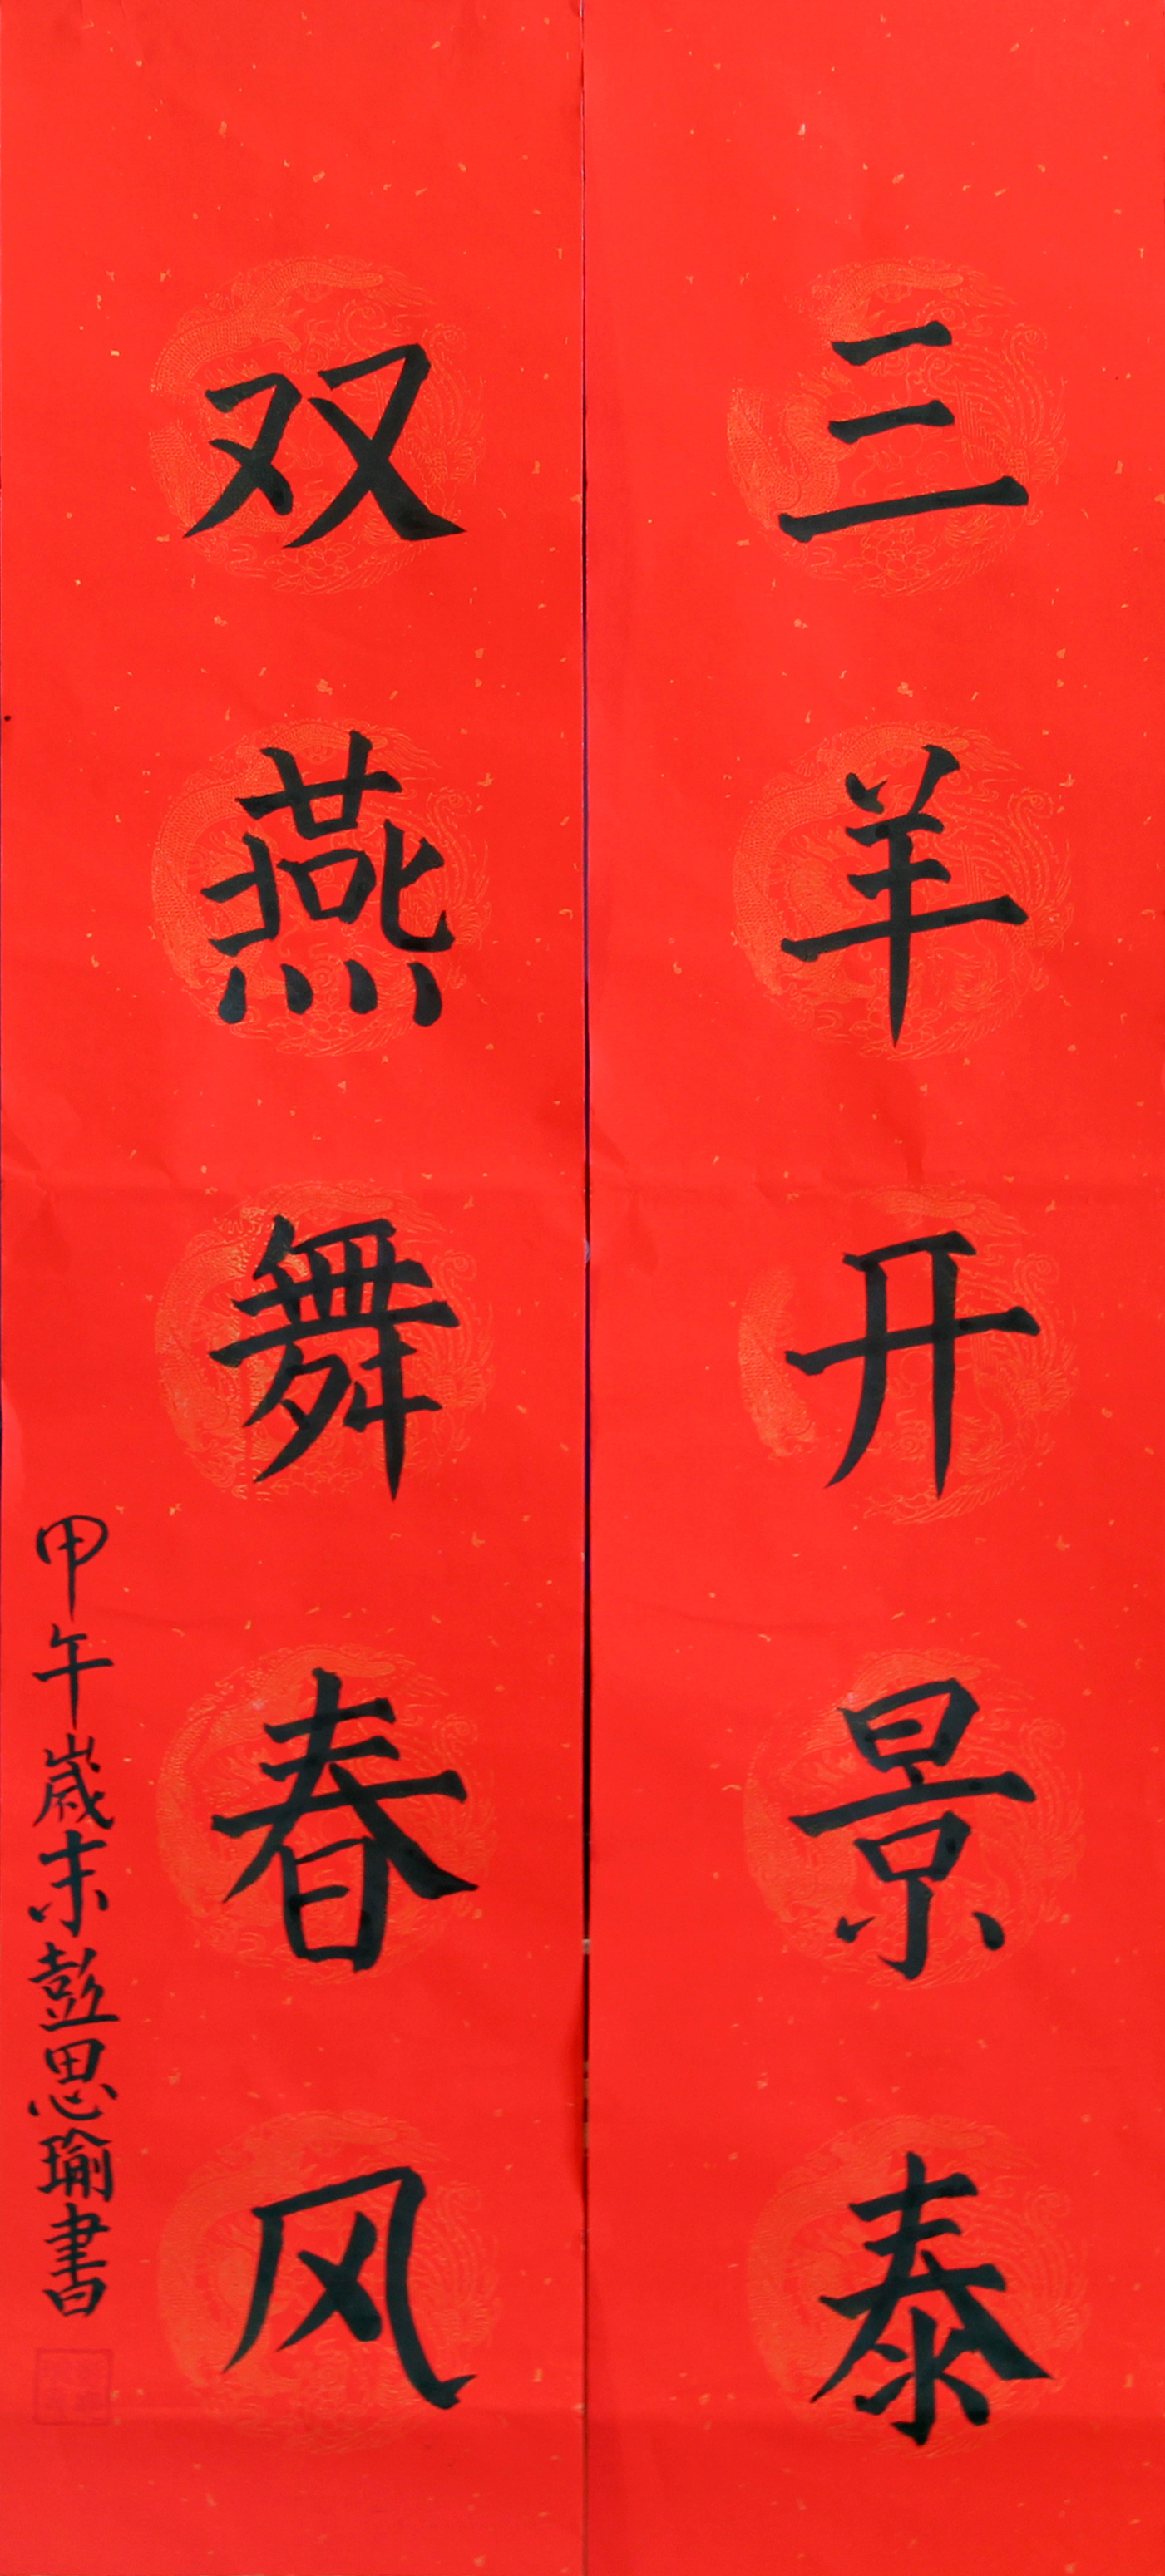 三羊开景泰
双燕舞春风
甲午歲末彭思瑜書